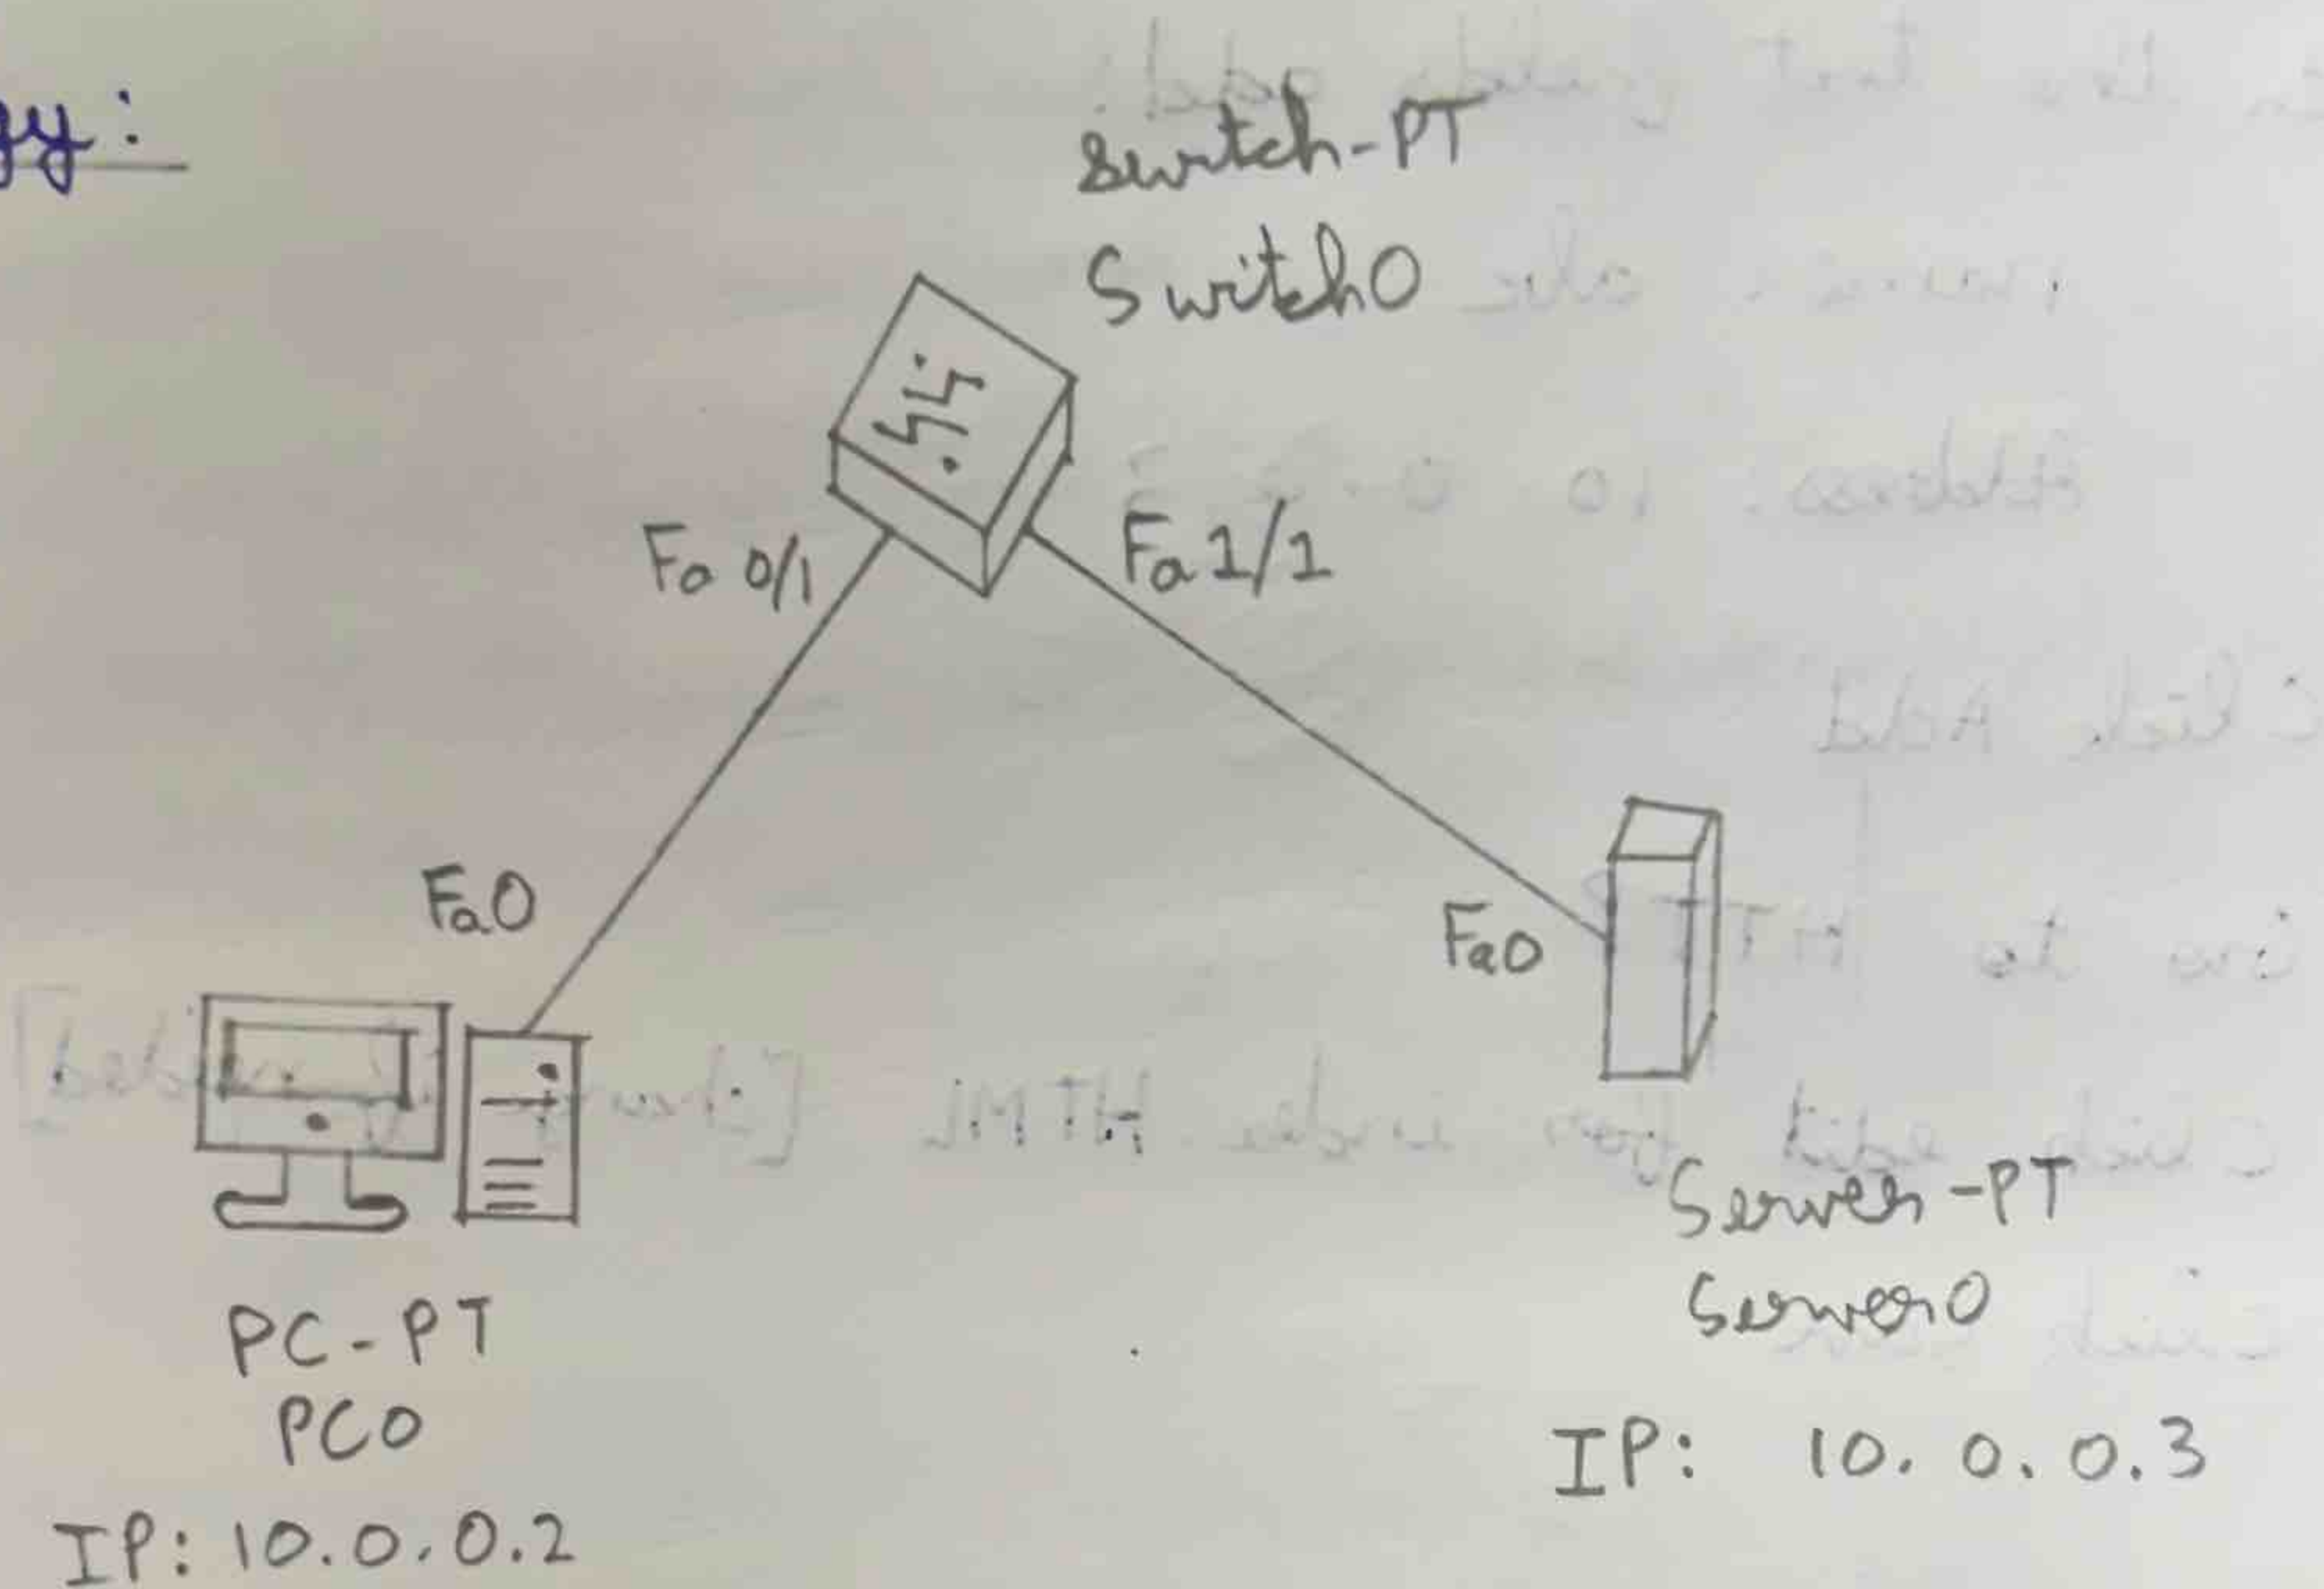 gy:
Switch-PT
Switch0
Fa 0/1
Fa 1/1
Fa0
Fa0
PC-PT
PC0
IP: 10.0.0.2
Server-PT
Server0
IP: 10.0.0.3